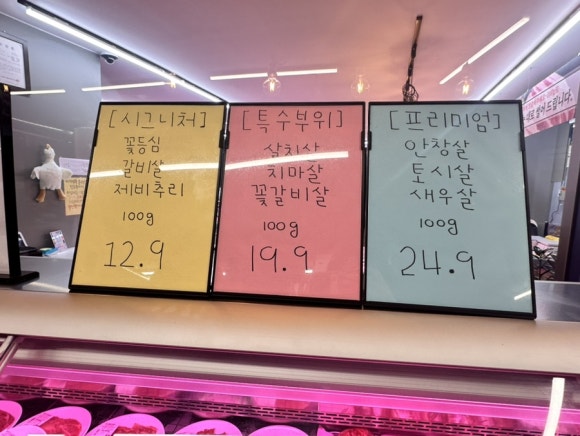 [시그니처]
꽃등심
갈비살
제비추리
100g
12.9
[특수부위]
살치살
치마살
꽃갈비살
100g
19.9
[프리미엄]
안창살
토시살
새우살
100g
24.9